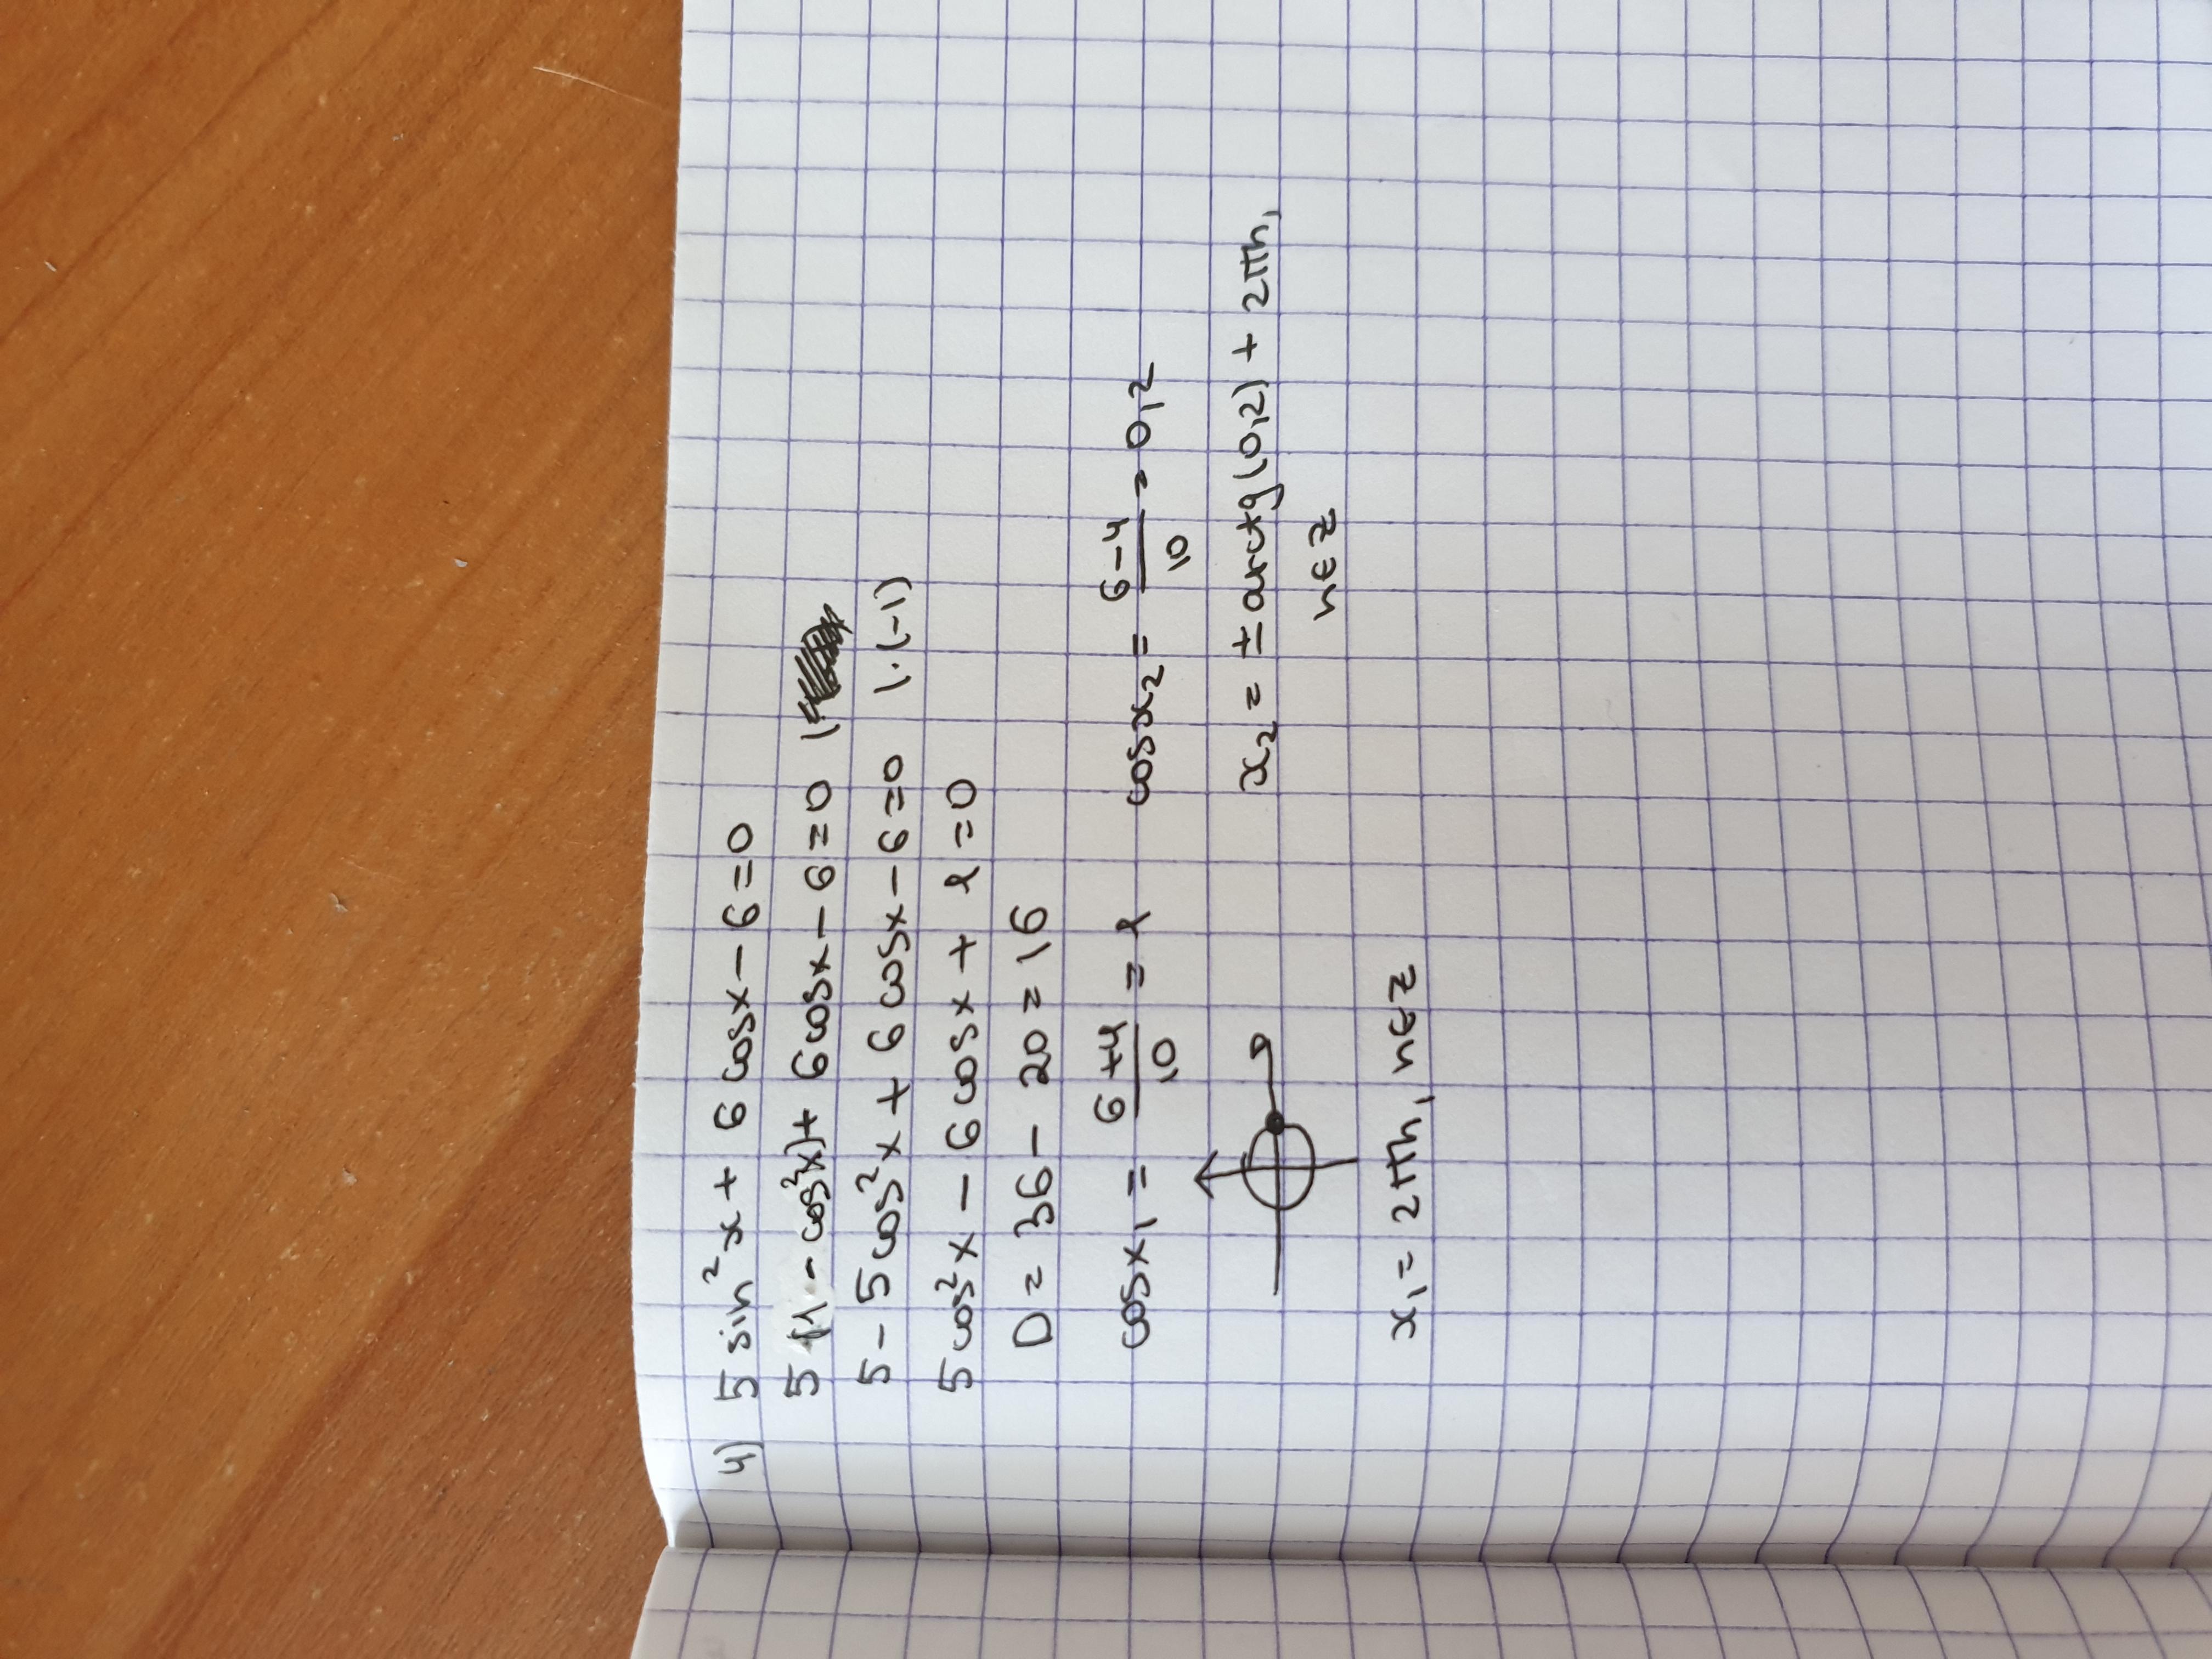 4) 5 sin²x + 6 cosx – 6 = 0
5(1 - cos²x) + 6cosx – 6 = 0 |
5 – 5cos²x + 6cosx – 6 = 0 |·(-1)
5cos²x – 6cosx + 1 = 0
D = 36 – 20 = 16
cosx₁ = (6+4)/10 = 1 cosx₂ = (6-4)/10 = 0,2
x₂ = ± arctg(0,2) + 2πn,
n∈Z
x₁ = 2πn, n∈Z